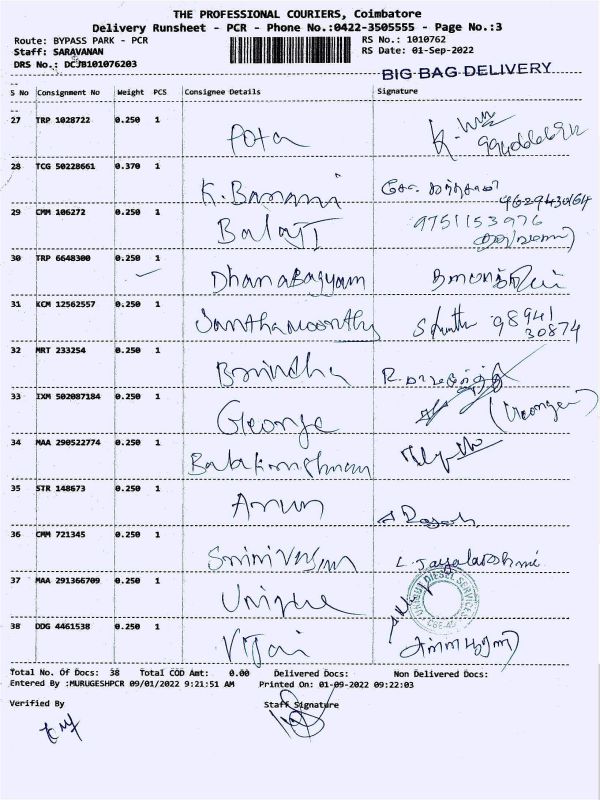 THE PROFESSIONAL COURIERS, Coimbatore
Delivery Runsheet - PCR - Phone No.:0422-3505555 - Page No.:3
Route: BYPASS PARK - PCR RS No.: 1010762
Staff: SARAVANAN RS Date: 01-Sep-2022
DRS No.: DCJB101076203
BIG BAG DELIVERY
S No Consignment No Weight PCS Consignee Details Signature
27 TRP 1028722 0.250 1
Pota
28 TCG 50228661 0.370 1
K. Banami 4629430164
29 CMM 106272 0.250 1
Balaji 9751153976
30 TRP 6648300 0.250 1
Dhanabagyam
31 KCM 12562557 0.250 1
Santhamoorthy 98941
30874
32 MRT 233254 0.250 1
Brindha
33 IXM 502087184 0.250 1
George
34 MAA 290522774 0.250 1
Balakrishnan
35 STR 148673 0.250 1
Arun
36 CMM 721345 0.250 1
Srinivasan L. Jayalakshmi
37 MAA 291366709 0.250 1
Unique UNIQUE DIESEL SERVICES
38 DDG 4461538 0.250 1
Vijai
Total No. Of Docs: 38 Total COD Amt: 0.00 Delivered Docs: Non Delivered Docs:
Entered By :MURUGESHPCR 09/01/2022 9:21:51 AM Printed On: 01-09-2022 09:22:03
Verified By Staff Signature